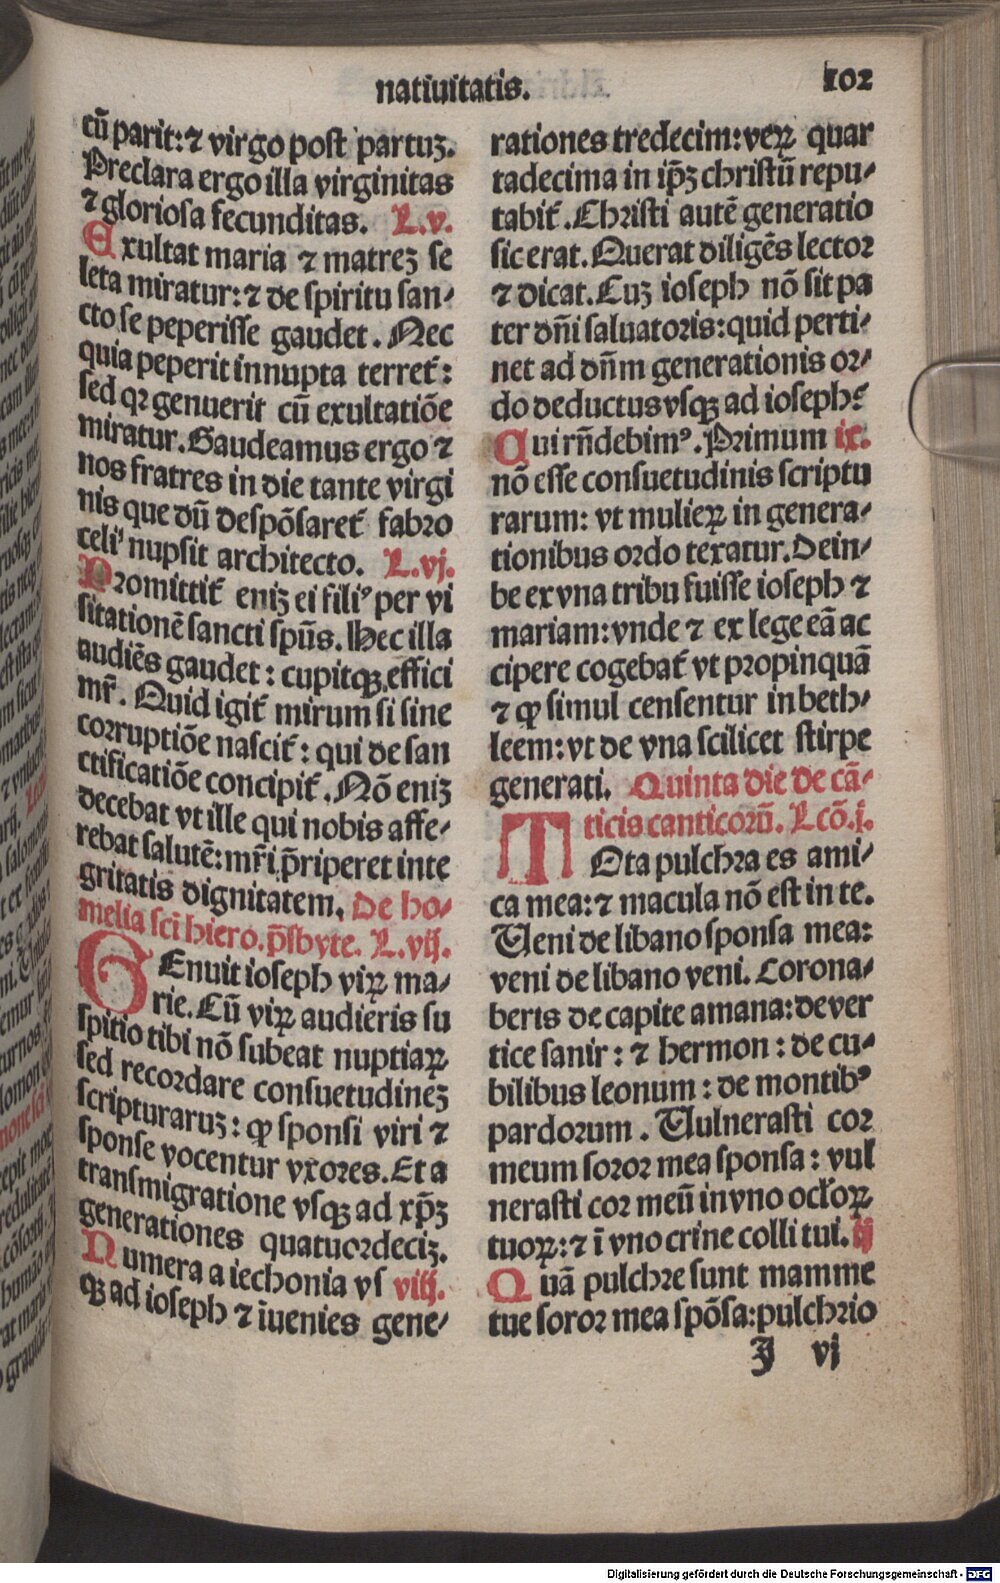 natiuitatis.
102
cū parit: ⁊ virgo post partuꝫ.
Preclara ergo illa virginitas
⁊ gloriosa fecunditas. L.v.
Exultat maria ⁊ matreꝫ se
leta miratur: ⁊ de spiritu san⸗
cto se peperisse gaudet. Nec
quia peperit innupta terret᷑:
sed qꝛ genuerit cū exultatiōe
miratur. Gaudeamus ergo ⁊
nos fratres in die tante virgi
nis que dū despōsaret᷑ fabro
celiꝰ nupsit architecto. L.vj.
Promittit᷑ eniꝫ ei filiꝰ per vi
sitationē sancti spūs. Hec illa
audiēs gaudet: cupitqꝫ effici
mr̄. Quid igit᷑ mirum si sine
corruptiōe nascit᷑: qui de san
ctificatiōe concipit᷑. Nō eniꝫ
decebat vt ille qui nobis affe⸗
rebat salutē: mr̄i p̄riperet inte
gritatis dignitatem. De ho⸗
melia scī hiero. p̄sbyte. L.vij.
GEnuit ioseph viꝝ ma⸗
rie. Cū viꝝ audieris su
spitio tibi nō subeat nuptiaꝝ
sed recordare consuetudineꝫ
scripturaruꝫ: ꝙ sponsi viri ⁊
sponse vocentur vxores. Et a
transmigratione vsqꝫ ad xp̄ꝫ
generationes quatuordeciꝫ.
Numera a iechonia vs viij.
qꝫ ad ioseph ⁊ īuenies gene⸗
rationes tredecim: veꝝ quar
tadecima in ip̄ꝫ christū repu⸗
tabit᷑. Christi autē generatio
sic erat. Querat diligēs lector
⁊ dicat. Cuꝫ ioseph nō sit pa
ter dn̄i saluatoris: quid perti⸗
net ad dn̄m generationis or⸗
do deductus vsqꝫ ad ioseph?
Cui rn̄debimꝰ. Primum ix.
nō esse consuetudinis scriptu
rarum: vt mulieꝝ in genera⸗
tionibus ordo texatur. Dein⸗
be ex vna tribu fuisse ioseph ⁊
mariam: vnde ⁊ ex lege eā ac
cipere cogebat᷑ vt propinquā
⁊ ꝙ simul censentur in beth⸗
leem: vt de vna scilicet stirpe
generati. Quinta die de cā⸗
ticis canticorū. Lcō.j.
TOta pulchra es ami⸗
ca mea: ⁊ macula nō est in te.
Veni de libano sponsa mea:
veni de libano veni. Corona⸗
beris de capite amana: de ver
tice sanir: ⁊ hermon: de cu⸗
bilibus leonum: de montibꝰ
pardorum. Vulnerasti cor
meum soror mea sponsa: vul
nerasti cor meū in vno ocłoꝝ
tuoꝝ: ⁊ ī vno crine colli tui. ij
Quā pulchre sunt mamme
tue soror mea spōsa: pulchrio
J vj
Digitalisierung gefördert durch die Deutsche Forschungsgemeinschaft - DFG